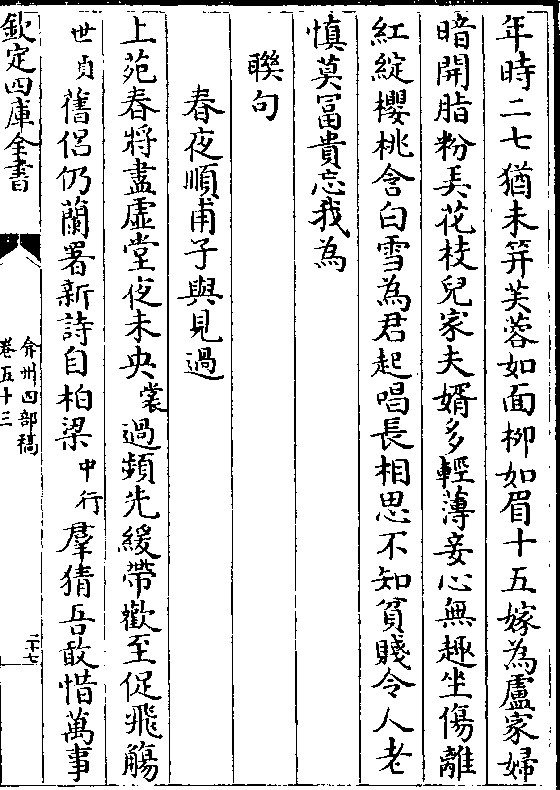 年時二七猶未笄芙蓉如面栁如眉十五嫁為盧家婦
暗開脂粉弄花枝兒家夫婿多輕薄妾心無趣坐傷離
紅綻櫻桃含白雪為君起唱長相思不知貧賤令人老
慎莫冨貴忘我為
聯句
春夜順甫子與見過
上苑春將盡虛堂夜未央裳過頻先緩帶歡至促飛觴
世貞舊侣仍蘭署新詩自柏梁中行羣猜吾敢惜萬事
欽定四庫全書
弇州四部稿
卷五十三
二十七